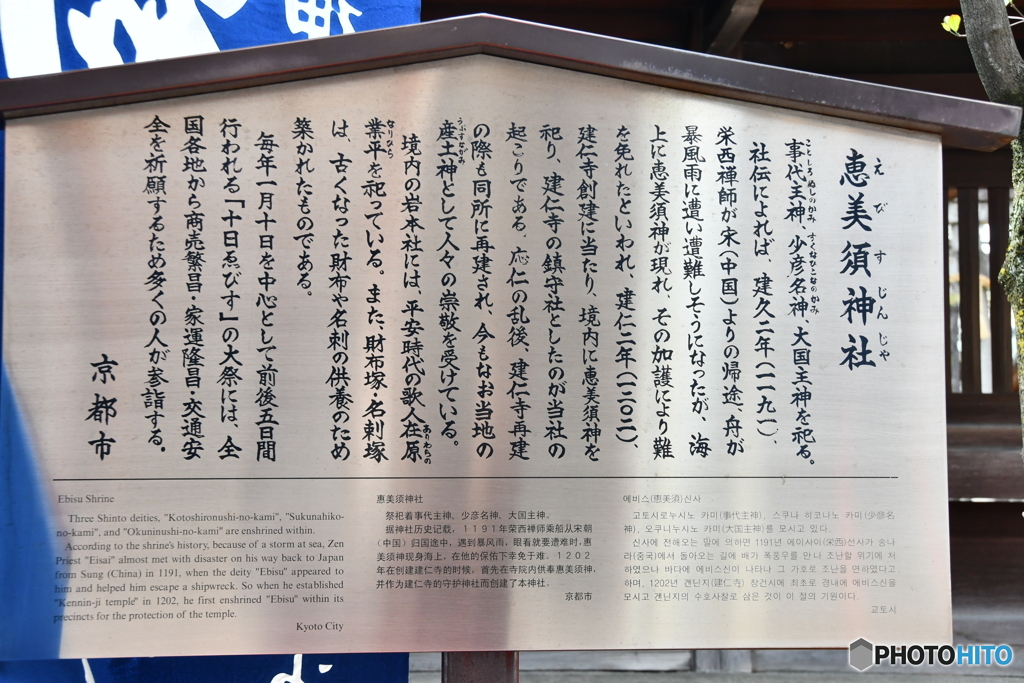 恵美須神社
えびすじんじゃ
事代主神、少彦名神、大国主神を祀る。
ことしろぬしのかみ
すくなひこなのかみ
社伝によれば、建久二年(一一九一)、
栄西禅師が宋(中国)よりの帰途、舟が
暴風雨に遭い遭難しそうになったが、海
上に恵美須神が現れ、その加護により難
を免れたといわれ、建仁二年(一二〇二)、
建仁寺創建に当たり、境内に恵美須神を
祀り、建仁寺の鎮守社としたのが当社の
起こりである。応仁の乱後、建仁寺再建
の際も同所に再建され、今もなお当地の
産土神として人々の崇敬を受けている。
うぶすながみ
境内の岩本社には、平安時代の歌人在原
ありわらの
業平を祀っている。また、財布塚・名刺塚
なりひら
は、古くなった財布や名刺の供養のため
築かれたものである。
毎年一月十日を中心として前後五日間
行われる「十日ゑびす」の大祭には、全
国各地から商売繁昌・家運隆昌・交通安
全を祈願するため多くの人が参詣する。
京都市
Ebisu Shrine
Three Shinto deities, "Kotoshironushi-no-kami", "Sukunahiko-
no-kami", and "Okuninushi-no-kami" are enshrined within.
According to the shrine's history, because of a storm at sea, Zen
Priest "Eisai" almost met with disaster on his way back to Japan
from Sung (China) in 1191, when the deity "Ebisu" appeared to
him and helped him escape a shipwreck. So when he established
"Kennin-ji temple" in 1202, he first enshrined "Ebisu" within its
precincts for the protection of the temple.
Kyoto City
惠美须神社
祭祀着事代主神、少彦名神、大国主神。
据神社历史记载，1191年荣西禅师乘船从宋朝
（中国）归国途中，遇到暴风雨，眼看就要遭难时，惠
美须神现身海上，在他的保佑下幸免于难。1202
年在创建建仁寺的时候，首先在寺院内供奉惠美须神，
并作为建仁寺的守护神社而创建了本神社。
京都市
에비스(恵美須)신사
고토시로누시노 카미(事代主神), 스쿠나 히코나노 카미(少彦名
神), 오쿠니누시노 카미(大国主神)를 모시고 있다.
신사에 전해오는 말에 의하면 1191년 에이사이(栄西)선사가 송나
라(중국)에서 돌아오는 길에 배가 폭풍우를 만나 조난할 위기에 처
하였으나 바다에 에비스신이 나타나 그 가호로 조난을 면하였다고
하며, 1202년 겐닌지(建仁寺) 창건시에 최초로 경내에 에비스신을
모시고 겐닌지의 수호사찰로 삼은 것이 이 절의 기원이다.
교토시
PHOTOHITO